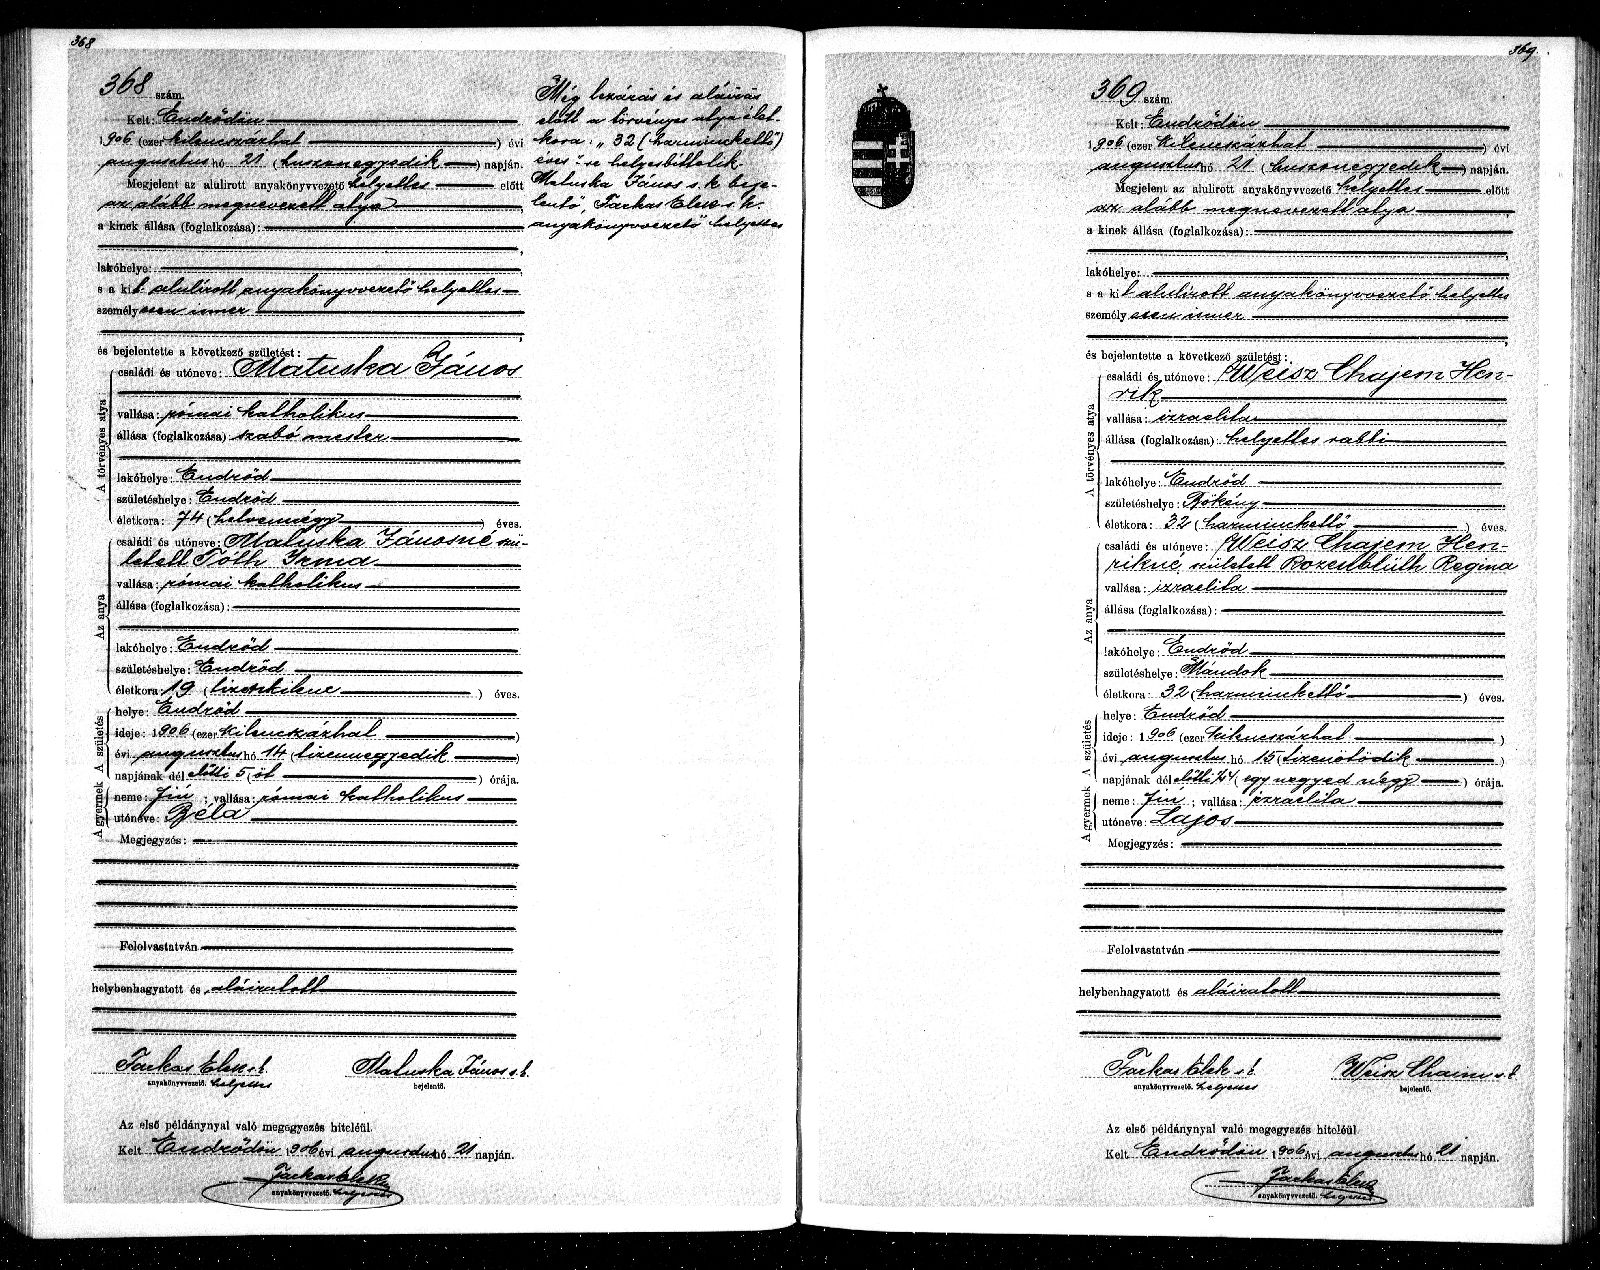 368
368 szám.
Kelt: Endrődön
1906 (ezer kilencszázhat) évi
augusztus hó 21 (huszonegyedik) napján.
Megjelent az alulirott anyakönyvvezető helyettes előtt
az alább megnevezett atya
a kinek állása (foglalkozása):
lakóhelye:
s a kit alulírott anyakönyvvezető helyettes
személyesen ismer
és bejelentette a következő születést:
A törvényes atya
családi és utóneve: Matuska János
vallása: római katholikus
állása (foglalkozása) szabó mester
lakóhelye: Endrőd
születéshelye: Endrőd
életkora: 74 (hetvennégy) éves.
Az anya
családi és utóneve: Matuska Jánosné szü-
letett Tóth Irma
vallása: római katholikus
állása (foglalkozása):
lakóhelye: Endrőd
születéshelye: Endrőd
életkora: 19 (tizenkilenc) éves.
A gyermek A születés
helye: Endrőd
ideje: 1906 (ezer kilencszázhat)
évi augusztus hó 14 (tizennegyedik)
napjának dél előtti 5 (öt) órája.
neme: fiú; vallása: római katholikus
utóneve: Béla
Megjegyzés:
Felolvastatván
helybenhagyatott és aláiratott
Farkas Elek s.k. Matuska János s.k.
anyakönyvvezető. helyettes bejelentő.
Az első példánynyal való megegyezés hiteléül.
Kelt Endrődön 1906 évi augusztus hó 21 napján.
Farkas Elek
anyakönyvvezető. helyettes
Még lezárás és aláírás
előtt a törvényes atya élet-
kora: „32 (harminckettő)
éves"-re helyesbíttetik.
Matuska János s.k. beje-
lentő, Farkas Elek s.k.
anyakönyvvezető helyettes
369
369 szám.
Kelt: Endrődön
1906 (ezer kilencszázhat) évi
augusztus hó 21 (huszonegyedik) napján.
Megjelent az alulirott anyakönyvvezető helyettes előtt
az alább megnevezett atya
a kinek állása (foglalkozása):
lakóhelye:
s a kit alulírott anyakönyvvezető helyettes
személyesen ismer
és bejelentette a következő születést:
A törvényes atya
családi és utóneve: Weisz Chajem Hen-
rik
vallása: izraelita
állása (foglalkozása): helyettes rabbi
lakóhelye: Endrőd
születéshelye: Bökény
életkora: 32 (harminckettő) éves.
Az anya
családi és utóneve: Weisz Chajem Hen-
rikné, született Rozenblüth Regina
vallása: izraelita
állása (foglalkozása):
lakóhelye: Endrőd
születéshelye: Mándok
életkora: 32 (harminckettő) éves.
A gyermek A születés
helye: Endrőd
ideje: 1906 (ezer kilencszázhat)
évi augusztus hó 15 (tizenötödik)
napjának dél előtti ¼4 (egynegyed négy) órája.
neme: fiú; vallása: izraelita
utóneve: Lajos
Megjegyzés:
Felolvastatván
helybenhagyatott és aláiratott
Farkas Elek s.k. Weisz Chaim s.k.
anyakönyvvezető. helyettes bejelentő.
Az első példánynyal való megegyezés hiteléül.
Kelt Endrődön 1906 évi augusztus hó 21 napján.
Farkas Elek
anyakönyvvezető. helyettes